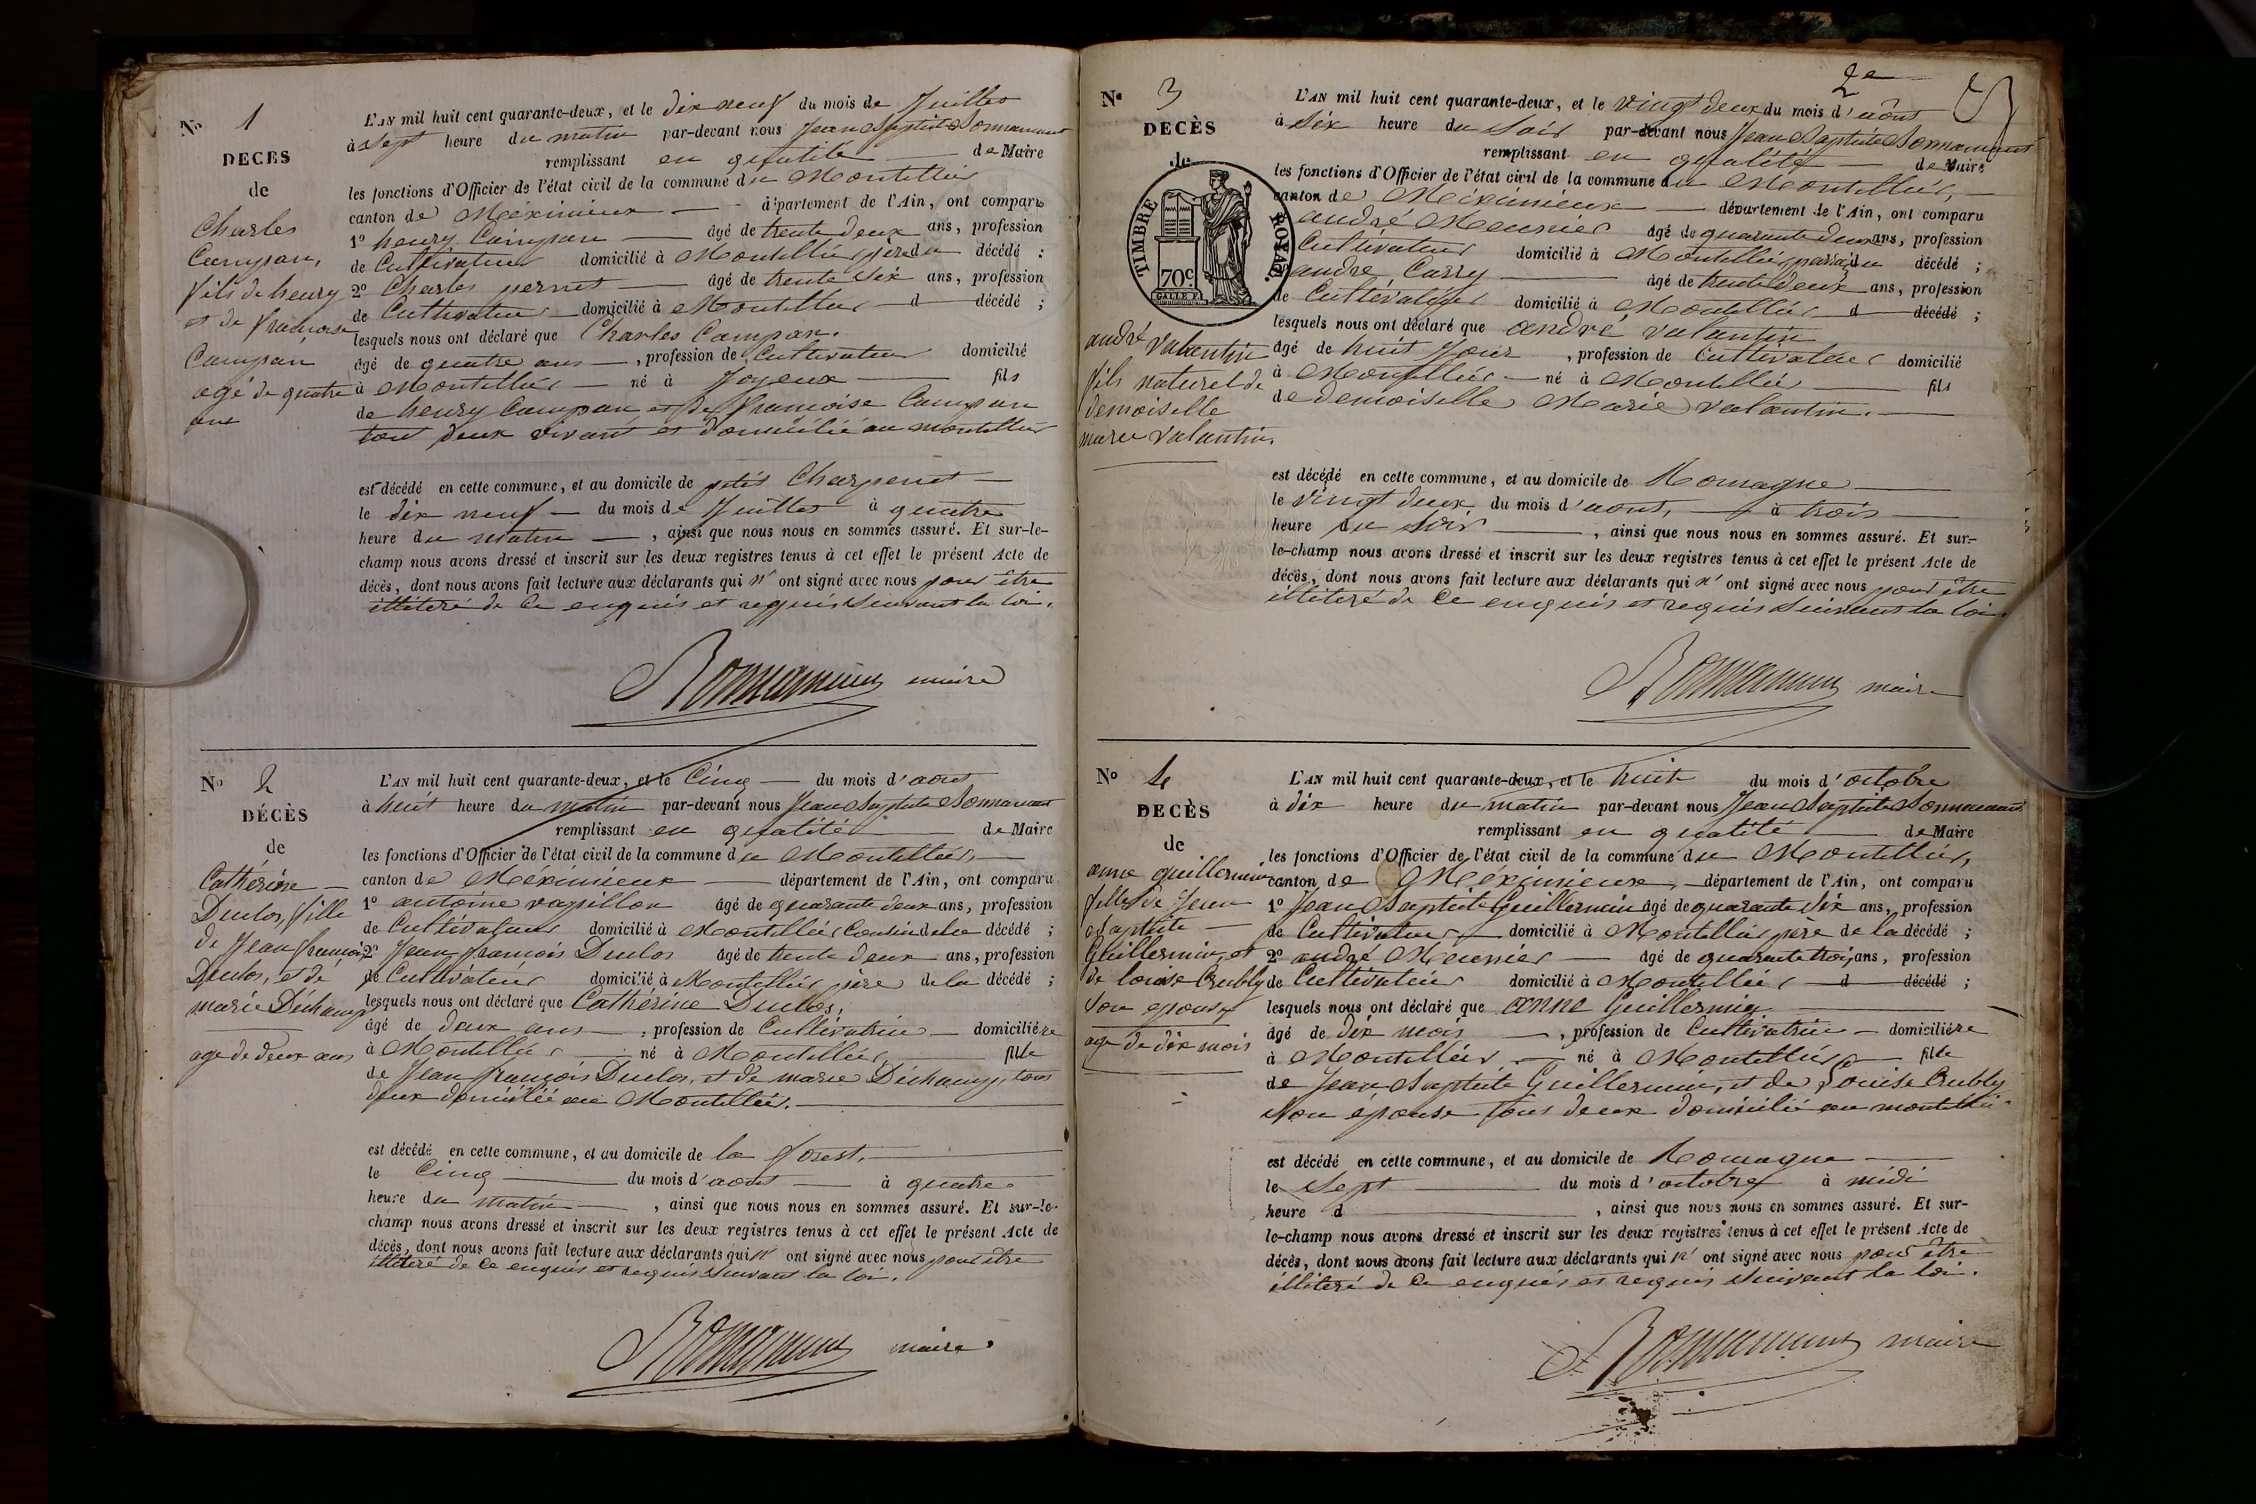 N° 1
DECES
de
Charles
Campan,
fils de henry
et de francoise
Campan
agé de quatre
ans
L'AN mil huit cent quarante-deux, et le dix neuf du mois de Juillet
à sept heure du matin par-devant nous Jean Baptiste Bonnamant
remplissant en qualité de Maire
les fonctions d'Officier de l'état civil de la commune du Montellier
canton de Méximieux département de l'Ain, ont comparu
1° henry Campan âgé de trente deux ans, profession
de Cultivateur domicilié à Montellier père du décédé ;
2° Charles pernet âgé de trente six ans, profession
de Cultivateur domicilié à Montellier d décédé ;
lesquels nous ont déclaré que Charles Campan.
âgé de quatre ans , profession de Cultivateur domicilié
à Montellier né à Joyeux fils
de henry Campan et de francoise Campan
tout deux vivant et domicilié au montellier
est décédé en cette commune, et au domicile de petit Charpenet
le dix neuf du mois de Juillet à quatre
heure du matin , ainsi que nous nous en sommes assuré. Et sur-le-
champ nous avons dressé et inscrit sur les deux registres tenus à cet effet le présent Acte de
décès, dont nous avons fait lecture aux déclarants qui n' ont signé avec nous pour être
illiteré de ce enquis et requis suivant la loi.
Bonnamant maire
N° 2
DÉCÈS
de
Cathérine
Duclos, fille
de Jean françois
Duclos, et de
marie Déchamp
age de deux ans
L'AN mil huit cent quarante-deux, et le Cinq du mois d'aout
à huit heure du matin par-devant nous Jean Baptiste Bonnamant
remplissant en qualité de Maire
les fonctions d'Officier de l'état civil de la commune du Montellier,
canton de Méximieux département de l'Ain, ont comparu
1° antoine vapillon âgé de quarante deux ans, profession
de Cultivateur domicilié à Montellier Cousin de la décédé ;
2° Jean françois Duclos âgé de trente deux ans, profession
de Cultivateur domicilié à Montellier père de la décédé ;
lesquels nous ont déclaré que Cathérine Duclos,
âgé de deux ans , profession de Cultivatrice domiciliére
à Montellier né à Montellier fille
de Jean françois Duclos, et de marie Déchamp, tous
deux domicilié au Montellier.
est décédé en cette commune, et au domicile de la forest,
le Cinq du mois d'aout à quatre
heure du matin , ainsi que nous nous en sommes assuré. Et sur-le-
champ nous avons dressé et inscrit sur les deux registres tenus à cet effet le présent Acte de
décès, dont nous avons fait lecture aux déclarants qui n' ont signé avec nous pour être
illiteré de ce enquis et requis suivant la loi.
Bonnamant maire
2e
N° 3
DECÈS
de
TIMBRE ROYAL
70c.
andré valentin
fils naturel de
demoiselle
marie valantin.
L'AN mil huit cent quarante-deux, et le vingt deux du mois d'août
à six heure du soir par-devant nous Jean Baptiste Bonnamant
remplissant en qualité de Maire
les fonctions d'Officier de l'état civil de la commune du Montellier,
canton de Méximieux département de l'Ain, ont comparu
andré Meunier âgé de quarante deux ans, profession
Cultivateur domicilié à Montellier du décédé ;
andré Carry âgé de trente deux ans, profession
de Cultivateur domicilié à Montellier d décédé ;
lesquels nous ont déclaré que andré valantin
âgé de huit Jour , profession de Cultivateur domicilié
à Montellier né à Montellier fils
de demoiselle Marie valantin.
est décédé en cette commune, et au domicile de Romagne
le vingt deux du mois d'aout, à trois
heure du soir , ainsi que nous nous en sommes assuré. Et sur-
le-champ nous avons dressé et inscrit sur les deux registres tenus à cet effet le présent Acte de
décès, dont nous avons fait lecture aux déclarants qui n' ont signé avec nous pour être
illiteré de ce enquis et requis suivant la loi
Bonnamant maire
N° 4
DECÈS
de
anne guillermin
fille de Jean
Baptiste
Guillermin, et
de louise Crubly
son epouse
age de dix mois
L'AN mil huit cent quarante-deux, et le huit du mois d'octobre
à dix heure du matin par-devant nous Jean Baptiste Bonnamant
remplissant en qualité de Maire
les fonctions d'Officier de l'état civil de la commune du Montellier,
canton de Méximieux, département de l'Ain, ont comparu
1° Jean Baptiste Guillermin âgé de quarante six ans, profession
de Cultivateur domicilié à Montellier père de la décédé ;
2° andré Meunier âgé de quarante trois ans, profession
de Cultivateur domicilié à Montellier d décédé ;
lesquels nous ont déclaré que anne Guillermin
âgé de dix mois , profession de Cultivatrice domiciliére
à Montellier né à Montellier fille
de Jean Baptiste Guillermin, et de Louise Crubly
son épouse tous deux domicilié au montellier
est décédé en cette commune, et au domicile de Romagne
le sept du mois d'octobre à midi
heure d , ainsi que nous nous en sommes assuré. Et sur-
le-champ nous avons dressé et inscrit sur les deux registres tenus à cet effet le présent Acte de
décès, dont nous avons fait lecture aux déclarants qui n' ont signé avec nous pour être
illiteré de ce enquis et requis suivant la loi.
Bonnamant maire